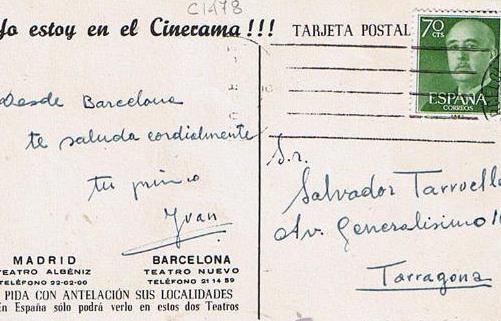 C1478
Yo estoy en el Cinerama!!!
TARJETA POSTAL
70
CTS
ESPAÑA
CORREOS
Desde Barcelona
te saluda cordialmente
tu primo
Yvan
Sr.
Salvador Tarruella
Av. Generalisimo
Tarragona
MADRID
TEATRO ALBÉNIZ
TELÉFONO 22-02-00
BARCELONA
TEATRO NUEVO
TELÉFONO 21 14 59
PIDA CON ANTELACIÓN SUS LOCALIDADES
En España sólo podrá verlo en estos dos Teatros